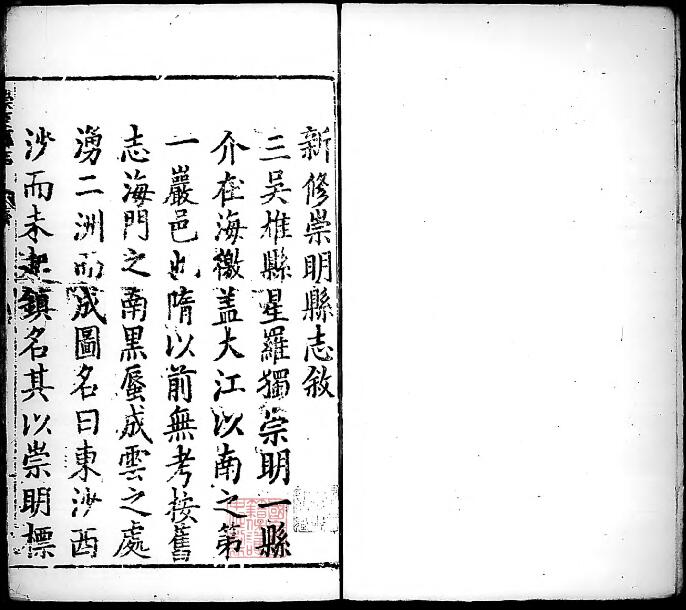 新修崇明縣志敘
三吳雄縣星羅獨崇明一縣
介在海徼蓋大江以南之第
一巖邑也隋以前無考按舊
志海門之南黑蜃成雲之處
湧二洲而成圖名曰東沙西
沙而未起鎮名其以崇明標